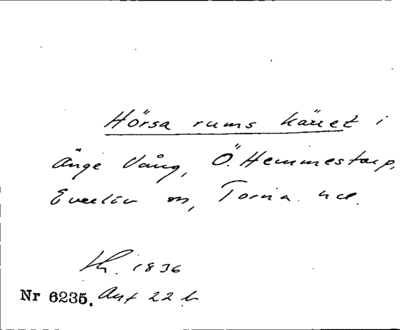 Hörsa rums käret i
Änge Vång, Ö. Hemmestorp,
Everlöv sn, Torna hd.
1836
Nr 6235. Ant 22 b